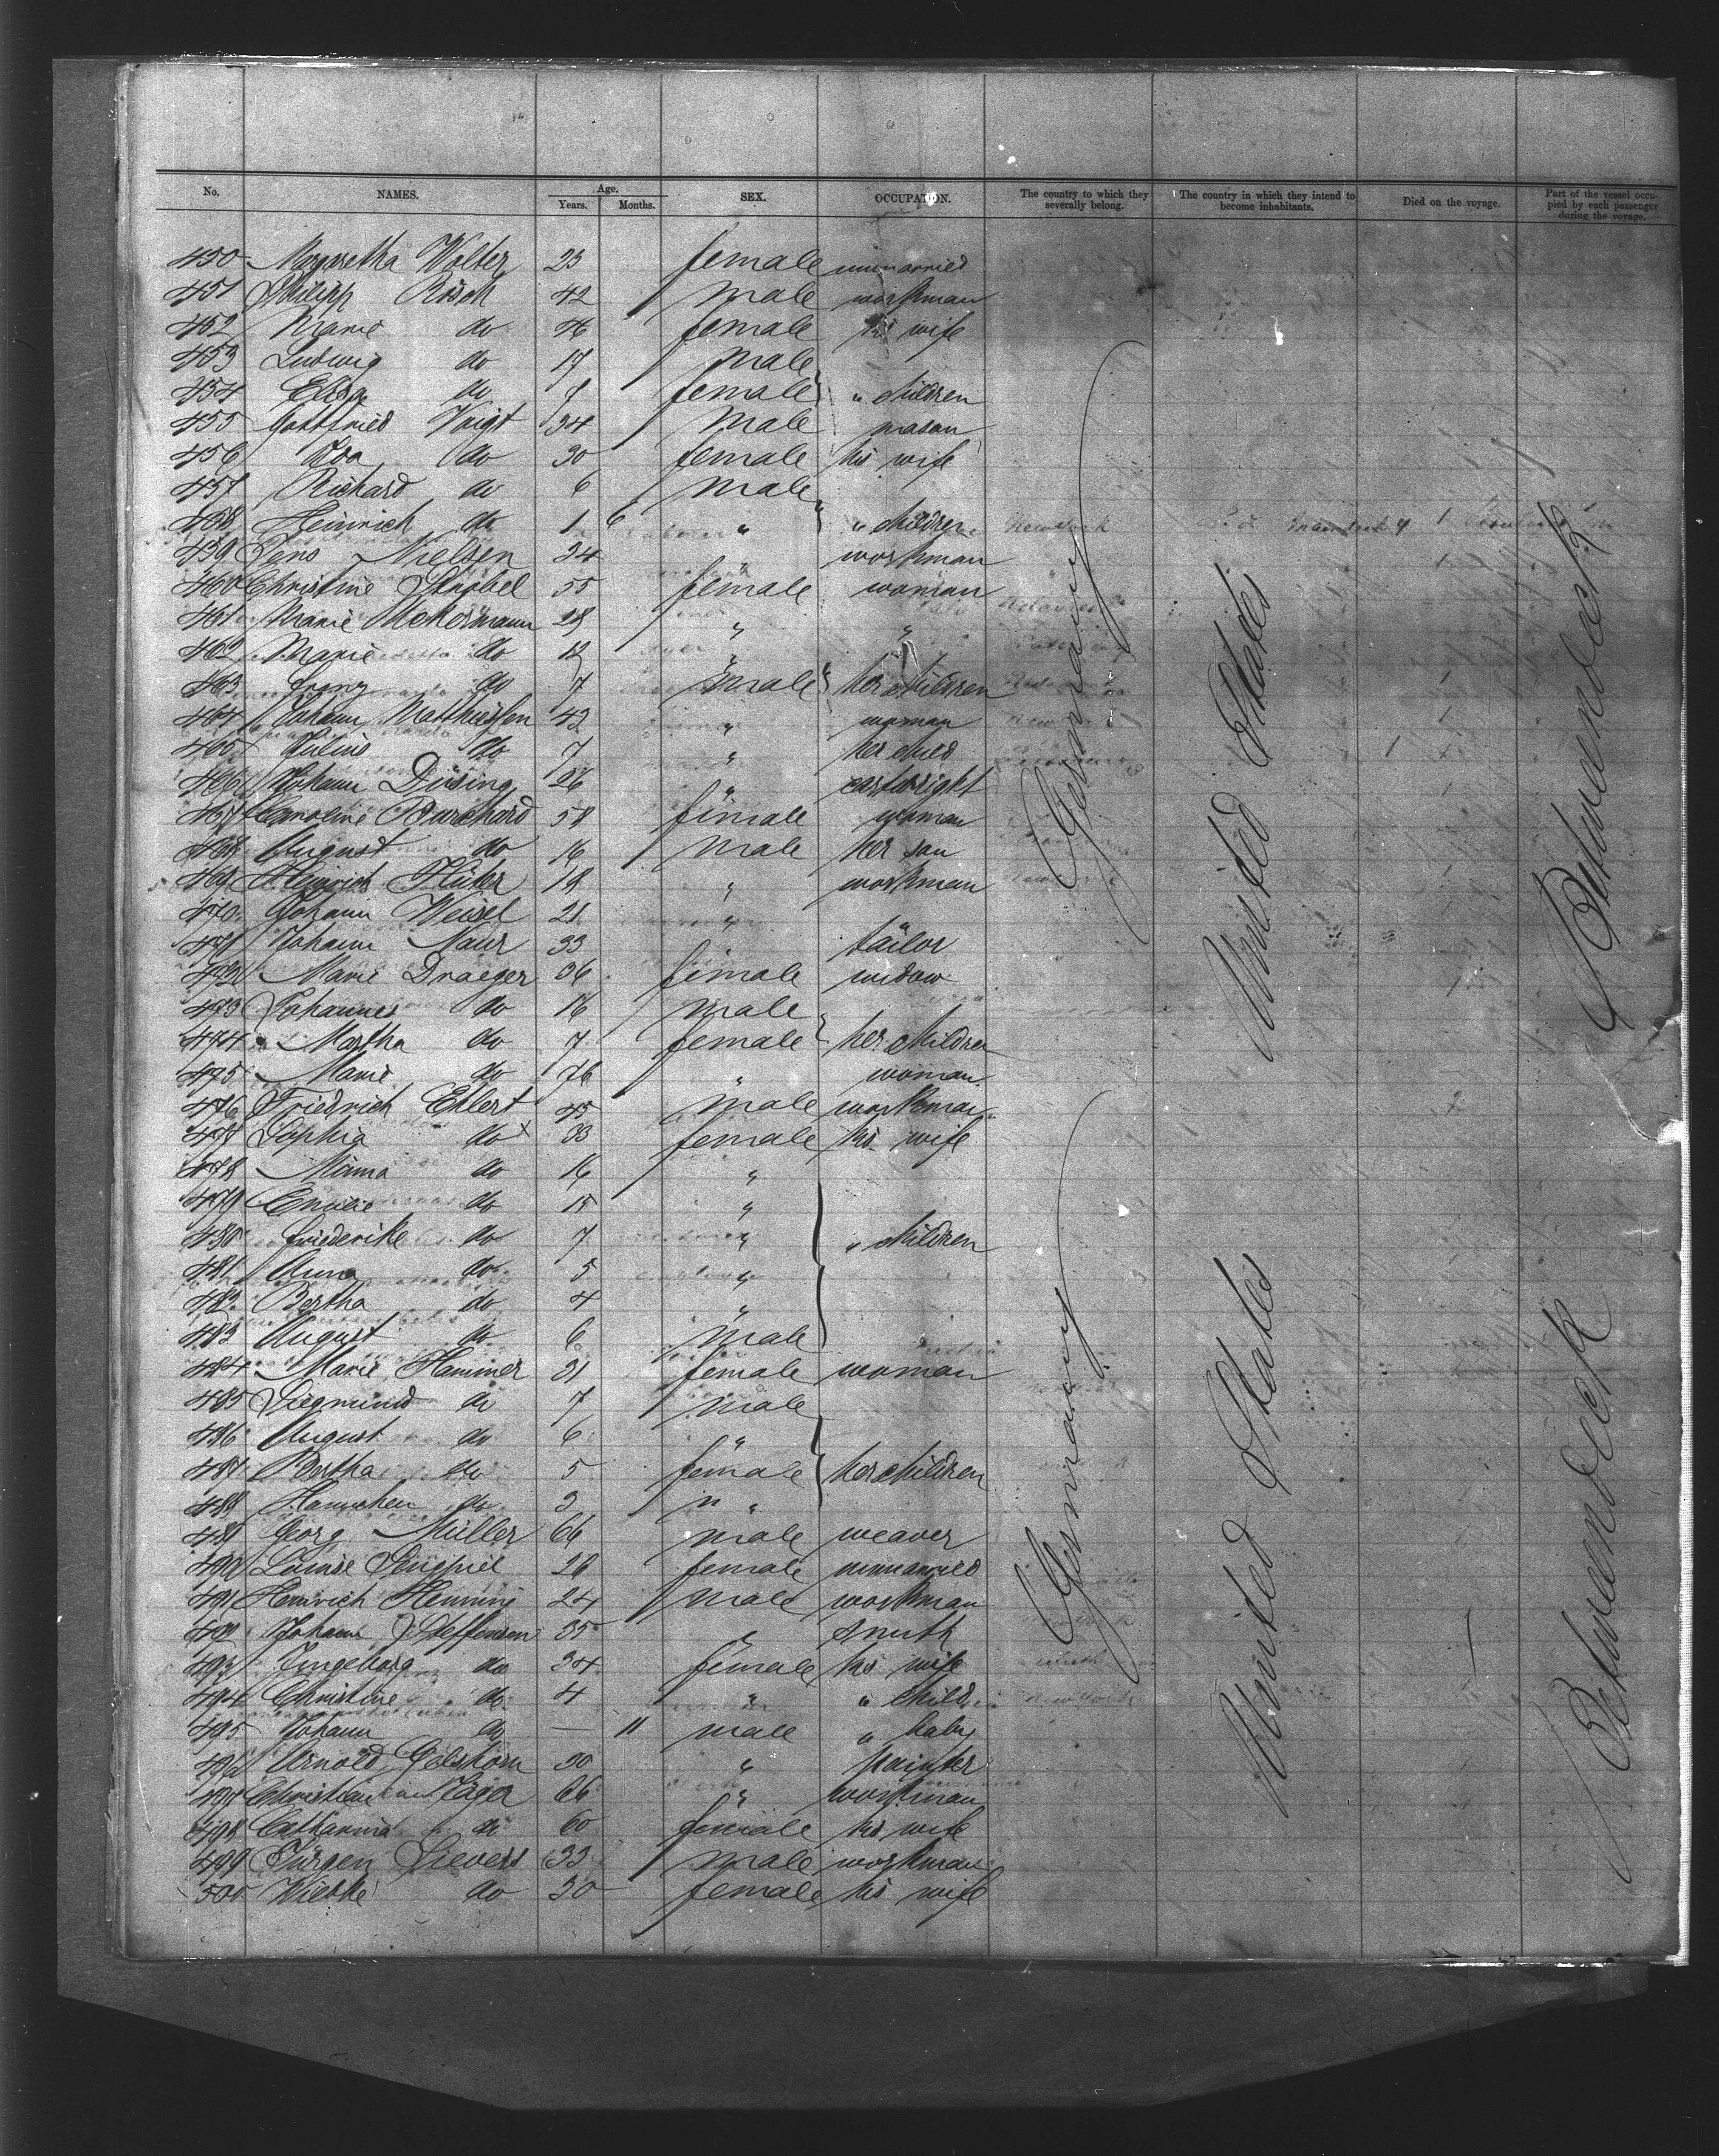 No. NAMES. Age. Years. Months. SEX. OCCUPATION. The country to which they severally belong. The country in which they intend to become inhabitants. Died on the voyage. Part of the vessel occupied by each passenger during the voyage.
450 Margaretha Wolter 23 female unmarried
451 Philipp Rösch 42 male workman
452 Marie do 46 female his wife
453 Ludwig do 17 male
454 Elisa do 9 female " children
455 Gottfried Voigt 34 male mason
456 Ida do 30 female his wife
457 Richard do 6 male
458 Heinrich do 1 6 " " children
459 Jens Nielsen 34 " workman
460 Christine Strobel 55 female woman
461 Marie 28 " "
462 Marie do 12 "
463 Franz do 7 male her children
464 Johann Matthiessen 43 " woman
465 Julius do 7 " her child
466 Johann Düsing 26 " cartwright
467 Caroline Burchard 58 female woman
468 August do 16 male her son
469 Heinrich Hüter 19 " workman
470 Johann Weisel 21 " "
471 Johann Naur 33 tailor
472 Marie Draeger 36 female widow
473 Johannes do 16 male
474 Martha do 7 female her children
475 Marie do 76 " woman
476 Friedrich Ehlert 45 male workman
477 Sophia do 33 female his wife
478 Minna do 16 "
479 Emilie do 15 "
480 Friederike do 7 " " children
481 Anna do 5 "
482 Bertha do 4 "
483 August do 6 male
484 Marie Hammer 31 female woman
485 Siegmund do 7 male
486 August do 6 "
487 Bertha do 5 female her children
488 Hannchen do 3 "
489 Georg Müller 66 male weaver
490 Louise 26 female unmarried
491 Heinrich Henning 24 male workman
492 Johann J. Steffensen 35 " smith
493 Ingeborg do 34 female his wife
494 Christine do 4 " " child
495 Johann do — 11 male " baby
496 Arnold Gölshorn 30 " painter
497 Christian Jäger 66 " workman
498 Catharina do 60 female his wife
499 Jürgen Sievers 33 male workman
500 Wiebke do 30 female his wife
Germany
United States
Betweendeck
Germany
United States
Betweendeck